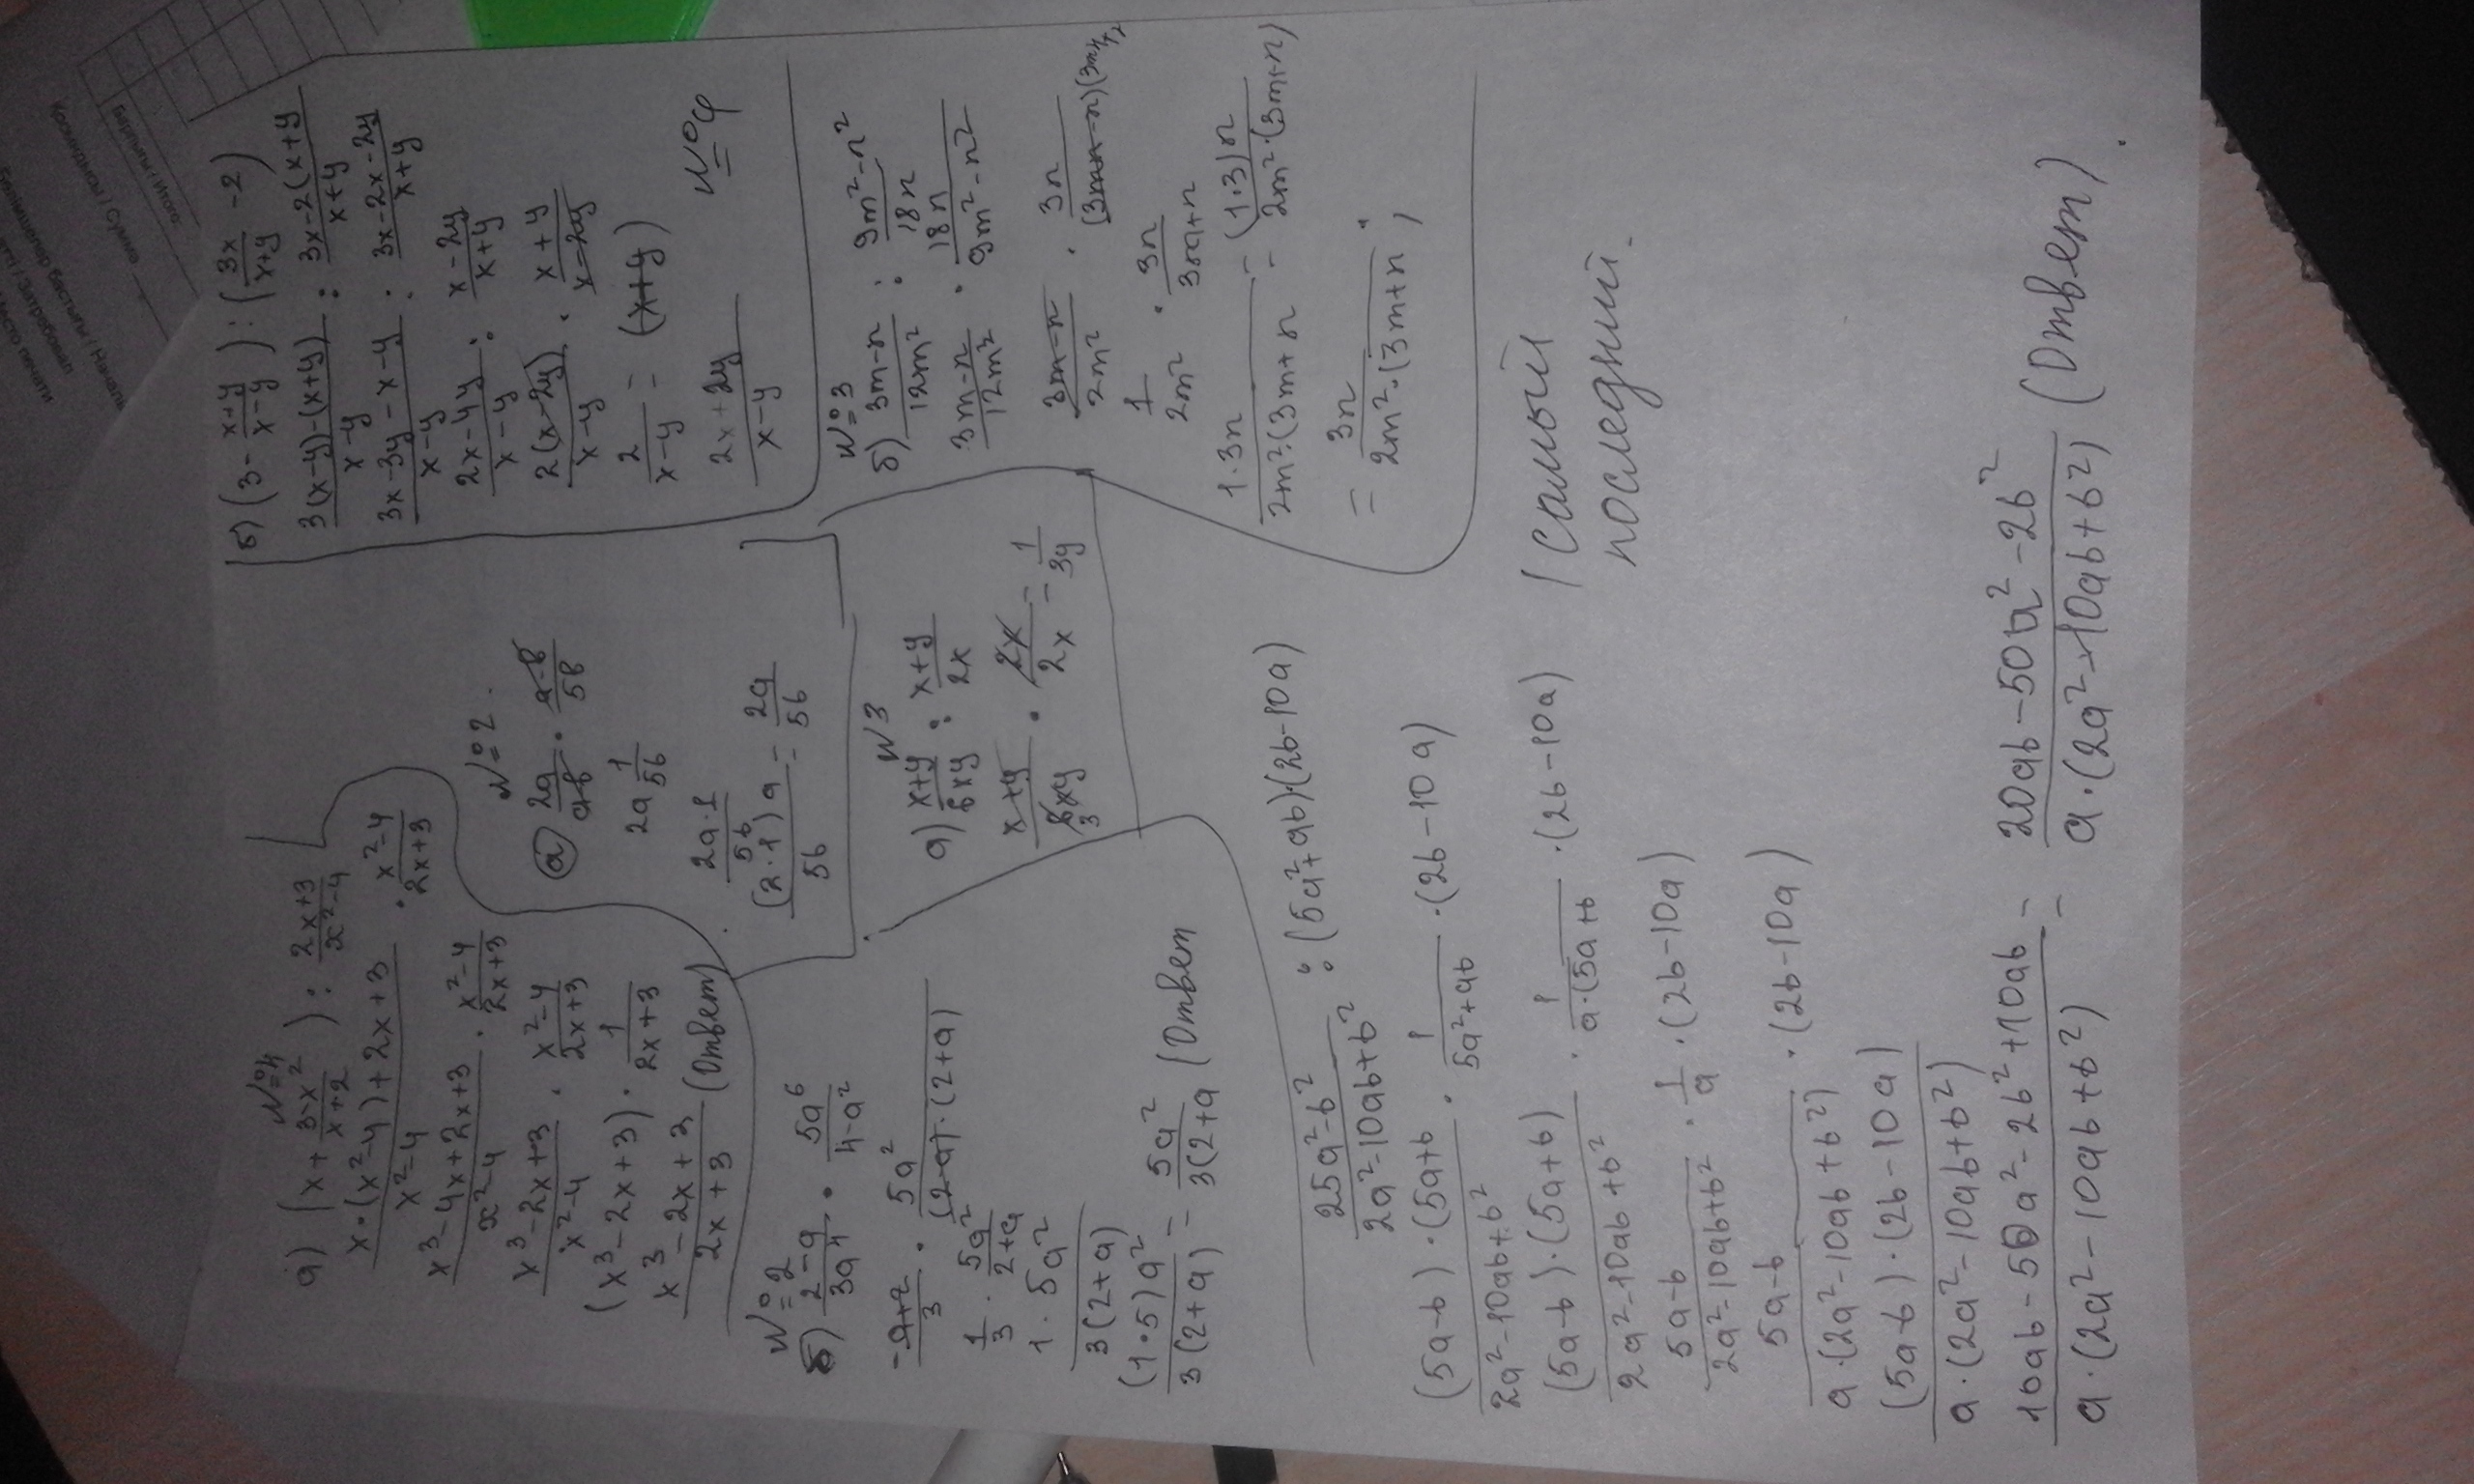 №4
а) (x + \frac{3-x^2}{x+2}) : \frac{2x+3}{x^2-4}
\frac{x·(x^2-4)+2x+3}{x^2-4} · \frac{x^2-4}{2x+3}
\frac{x^3-4x+2x+3}{x^2-4} · \frac{x^2-4}{2x+3}
\frac{x^3-2x+3}{x^2-4} · \frac{x^2-4}{2x+3}
(x^3-2x+3) · \frac{1}{2x+3}
\frac{x^3-2x+3}{2x+3} (Ответ)
№2.
а) \frac{2a}{a-b} · \frac{a-b}{5b}
2a \frac{1}{5b}
\frac{2a·1}{5b}
\frac{(2·1)a}{5b} = \frac{2a}{5b}
б) (3 - \frac{x+y}{x-y}) : (\frac{3x}{x+y} - 2)
\frac{3(x-y)-(x+y)}{x-y} : \frac{3x-2(x+y}{x+y}
\frac{3x-3y-x-y}{x-y} : \frac{3x-2x-2y}{x+y}
\frac{2x-4y}{x-y} : \frac{x-2y}{x+y}
\frac{2(x-2y)}{x-y} · \frac{x+y}{x-2y}
\frac{2}{x-y} = (x+y)
\frac{2x+2y}{x-y}
№2
б) \frac{2-a}{3a^4} · \frac{5a^6}{4-a^2}
\frac{-a+2}{3} · \frac{5a^2}{(2-a)·(2+a)}
\frac{1}{3} · \frac{5a^2}{2+a}
\frac{1·5a^2}{3(2+a)}
\frac{(1·5)a^2}{3(2+a)} = \frac{5a^2}{3(2+a} (Ответ
№3
а) \frac{x+y}{6xy} : \frac{x+y}{2x}
\frac{x+y}{6xy} · \frac{2x}{2x} = \frac{1}{3y}
3
№3
б) \frac{3m-n}{12m^2} : \frac{9m^2-n^2}{18n}
\frac{3m-n}{12m^2} · \frac{18n}{9m^2-n^2}
\frac{3m-n}{2m^2} · \frac{3n}{(3m-n)(3m+n}
\frac{1}{2m^2} · \frac{3n}{3m+n}
\frac{1·3n}{2m^2·(3m+n} = \frac{(1·3)n}{2m^2·(3m+n)}
= \frac{3n}{2m^2·(3m+n};
\frac{25a^2-b^2}{2a^2-10ab+b^2} : (5a^2+ab)·(2b-10a)
\frac{(5a-b)·(5a+b}{2a^2-10ab+b^2} · \frac{1}{5a^2+ab} · (2b-10a)
\frac{(5a-b)·(5a+b)}{2a^2-10ab+b^2} · \frac{1}{a·(5a+b} · (2b-10a)
\frac{5a-b}{2a^2-10ab+b^2} · \frac{1}{a} · (2b-10a)
\frac{5a-b}{a·(2a^2-10ab+b^2)} · (2b-10a)
\frac{(5a-b)·(2b-10a)}{a·(2a^2-10ab+b^2)}
\frac{10ab-50a^2-2b^2+10ab}{a·(2a^2-10ab+b^2)} = \frac{20ab-50a^2-2b^2}{a·(2a^2-10ab+b^2)} (Ответ)
(самый
последний.